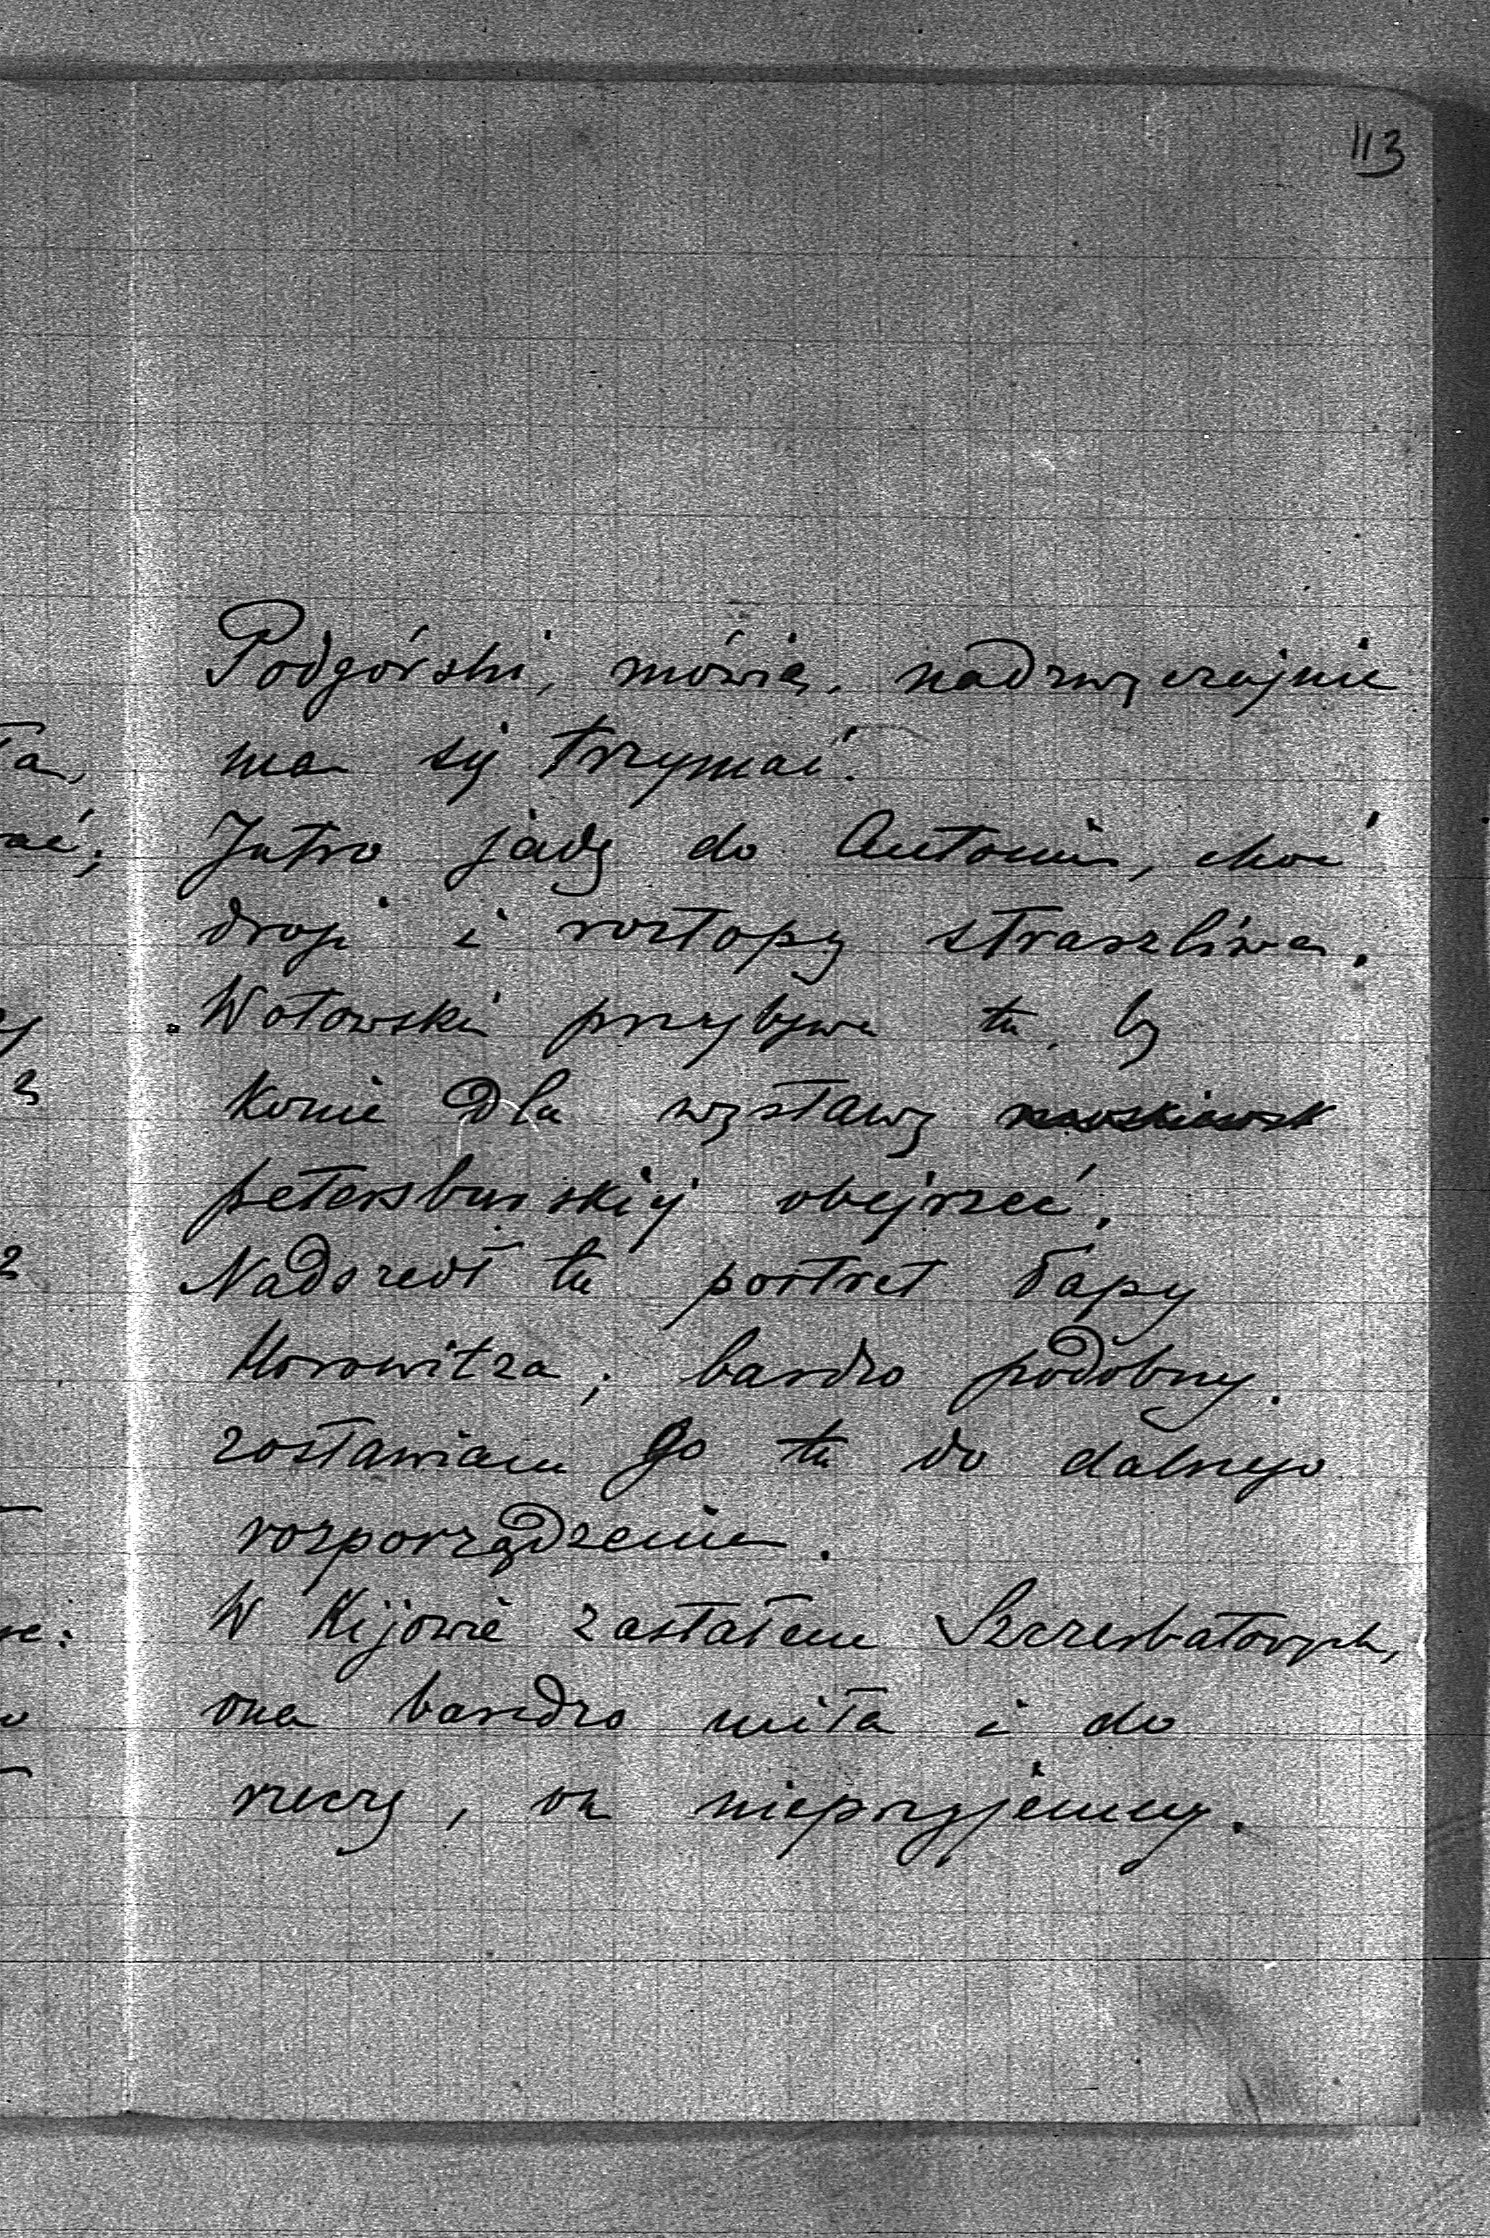 113
Podgórski, mówią, nadzwyczajnie
ma się trzymać.
Jutro jadę do Antonin, choć
drogi i roztopy straszliwe.
Wołowski przybywa tu, by
konie dla wystawy
petersburskiej obejrzeć.
Nadszedł tu portret Papy
Horowitza; bardzo podobny.
zostawiam go tu do dalszego
rozporządzenia.
W Kijowie zastałem Szczerbatowych,
ona bardzo miła i do
rzeczy, on nieprzyjemny.